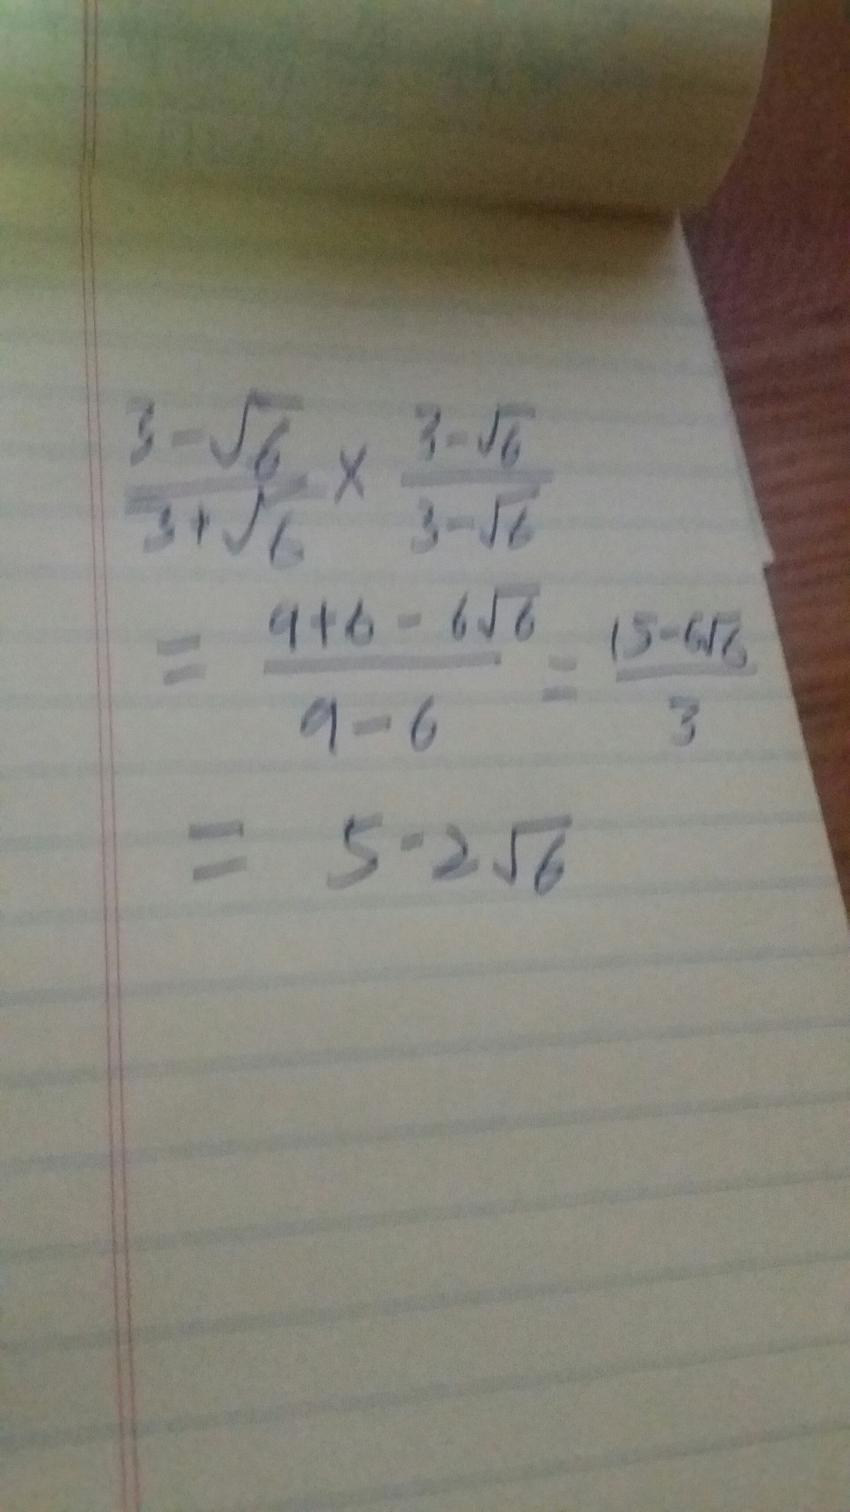 3-√6/3+√6 × 3-√6/3-√6
= 9+6-6√6/9-6 = 15-6√6/3
= 5-2√6